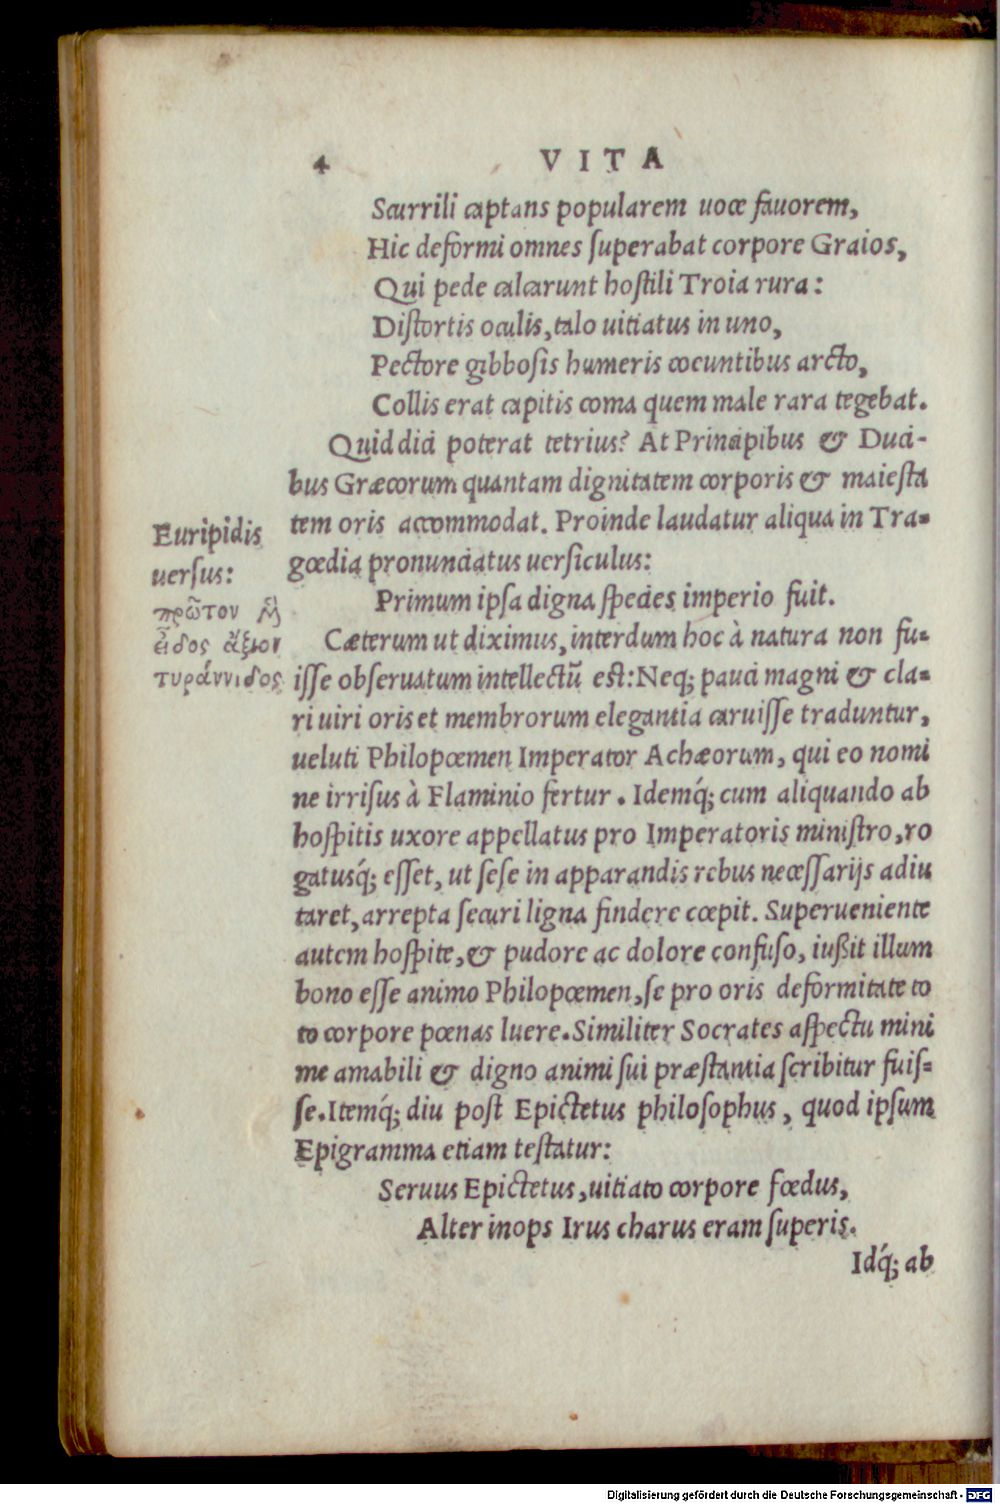 4 VITA
Scurrili captans popularem uoce fauorem,
Hic deformi omnes ſuperabat corpore Graios,
Qui pede calcarunt hoſtili Troia rura:
Diſtortis oculis, talo uitiatus in uno,
Pectore gibboſis humeris coeuntibus arcto,
Collis erat capitis coma quem male rara tegebat.
Quid dici poterat tetrius? At Principibus & Duci-
bus Græcorum quantam dignitatem corporis & maieſta
tem oris accommodat. Proinde laudatur aliqua in Tra-
gœdia pronunciatus uerſiculus:
Euripidis
uerſus:
πρῶτον μὲν
εἶδος ἄξιον
τυράννιδος
Primum ipſa digna ſpecies imperio fuit.
Cæterum ut diximus, interdum hoc à natura non fu-
iſſe obſeruatum intellectũ eſt: Neq; pauci magni & cla-
ri uiri oris et membrorum elegantia caruiſſe traduntur,
ueluti Philopœmen Imperator Achæorum, qui eo nomi
ne irriſus à Flaminio fertur. Idemq́; cum aliquando ab
hoſpitis uxore appellatus pro Imperatoris miniſtro, ro
gatusq́; eſſet, ut ſeſe in apparandis rebus neceſſarijs adiu
taret, arrepta ſecuri ligna findere cœpit. Superueniente
autem hoſpite, & pudore ac dolore confuſo, iußit illum
bono eſſe animo Philopœmen, ſe pro oris deformitate to
to corpore pœnas luere. Similiter Socrates aſpectu mini
me amabili & digno animi ſui præſtantia ſcribitur fuiſ-
ſe. Itemq́; diu poſt Epictetus philoſophus, quod ipſum
Epigramma etiam teſtatur:
Seruus Epictetus, uitiato corpore fœdus,
Alter inops Irus charus eram ſuperis.
Idq́; ab
Digitalisierung gefördert durch die Deutsche Forschungsgemeinschaft - DFG